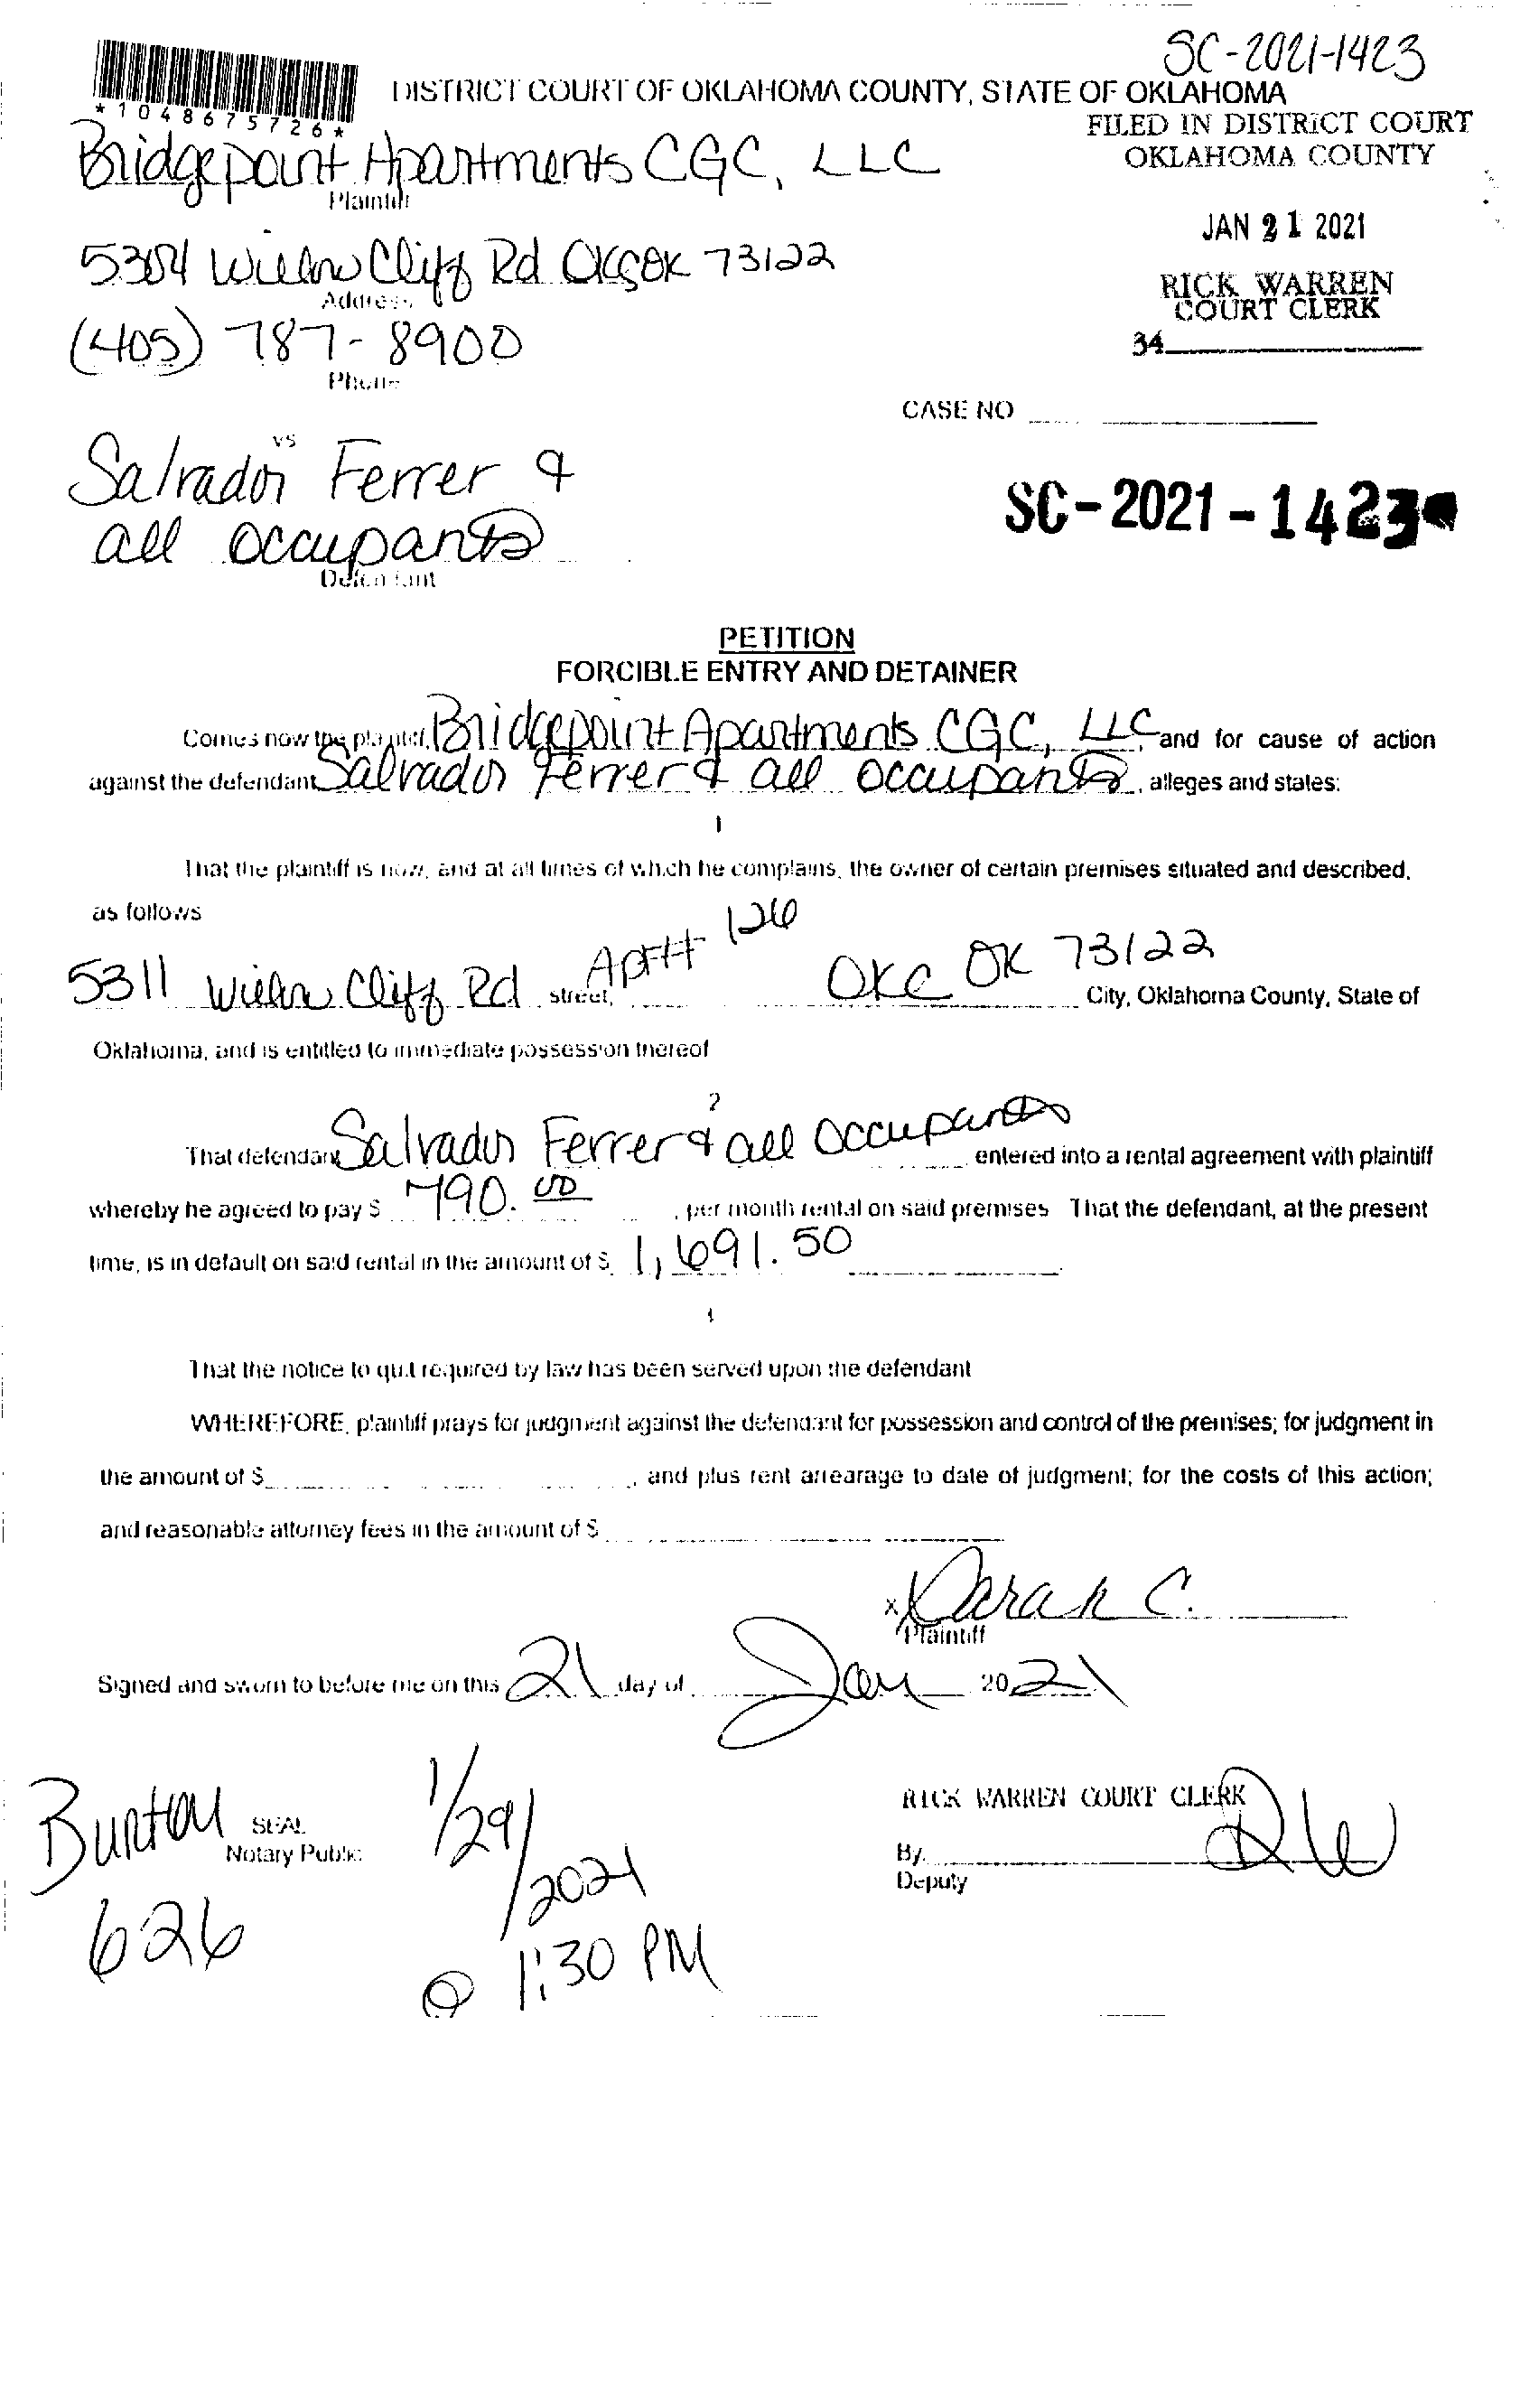 SC-2021-1423
*1048675726*
DISTRICT COURT OF OKLAHOMA COUNTY, STATE OF OKLAHOMA
FILED IN DISTRICT COURT
OKLAHOMA COUNTY
Bridgepoint Apartments CGC, LLC
Plaintiff
JAN 21 2021
5304 Willow Cliff Rd OKC OK 73122
Address
RICK WARREN
COURT CLERK
(405) 787-8900
Phone
34
CASE NO
vs
Salvador Ferrer &
all occupants
Defendant
SC-2021-1423
PETITION
FORCIBLE ENTRY AND DETAINER
Comes now the plaintiff, Bridgepoint Apartments CGC, LLC, and for cause of action
against the defendant Salvador Ferrer & all occupants, alleges and states:
1
That the plaintiff is now, and at all times of which he complains, the owner of certain premises situated and described,
as follows
5311 Willow Cliff Rd street, Apt# 126 OKC OK 73122 City, Oklahoma County, State of
Oklahoma, and is entitled to immediate possession thereof
2
That defendant Salvador Ferrer & all occupants entered into a rental agreement with plaintiff
whereby he agreed to pay $ 790.00, per month rental on said premises That the defendant, at the present
time, is in default on said rental in the amount of $ 1,691.50.
That the notice to quit required by law has been served upon the defendant
WHEREFORE, plaintiff prays for judgment against the defendant for possession and control of the premises; for judgment in
the amount of $, and plus rent arrearage to date of judgment; for the costs of this action;
and reasonable attorney fees in the amount of $
x Karah C.
Plaintiff
Signed and sworn to before me on this 21 day of Jan 2021
Burton
SEAL
Notary Public
626
1/29/2021
@ 1:30 PM
RICK WARREN COURT CLERK
By
Deputy